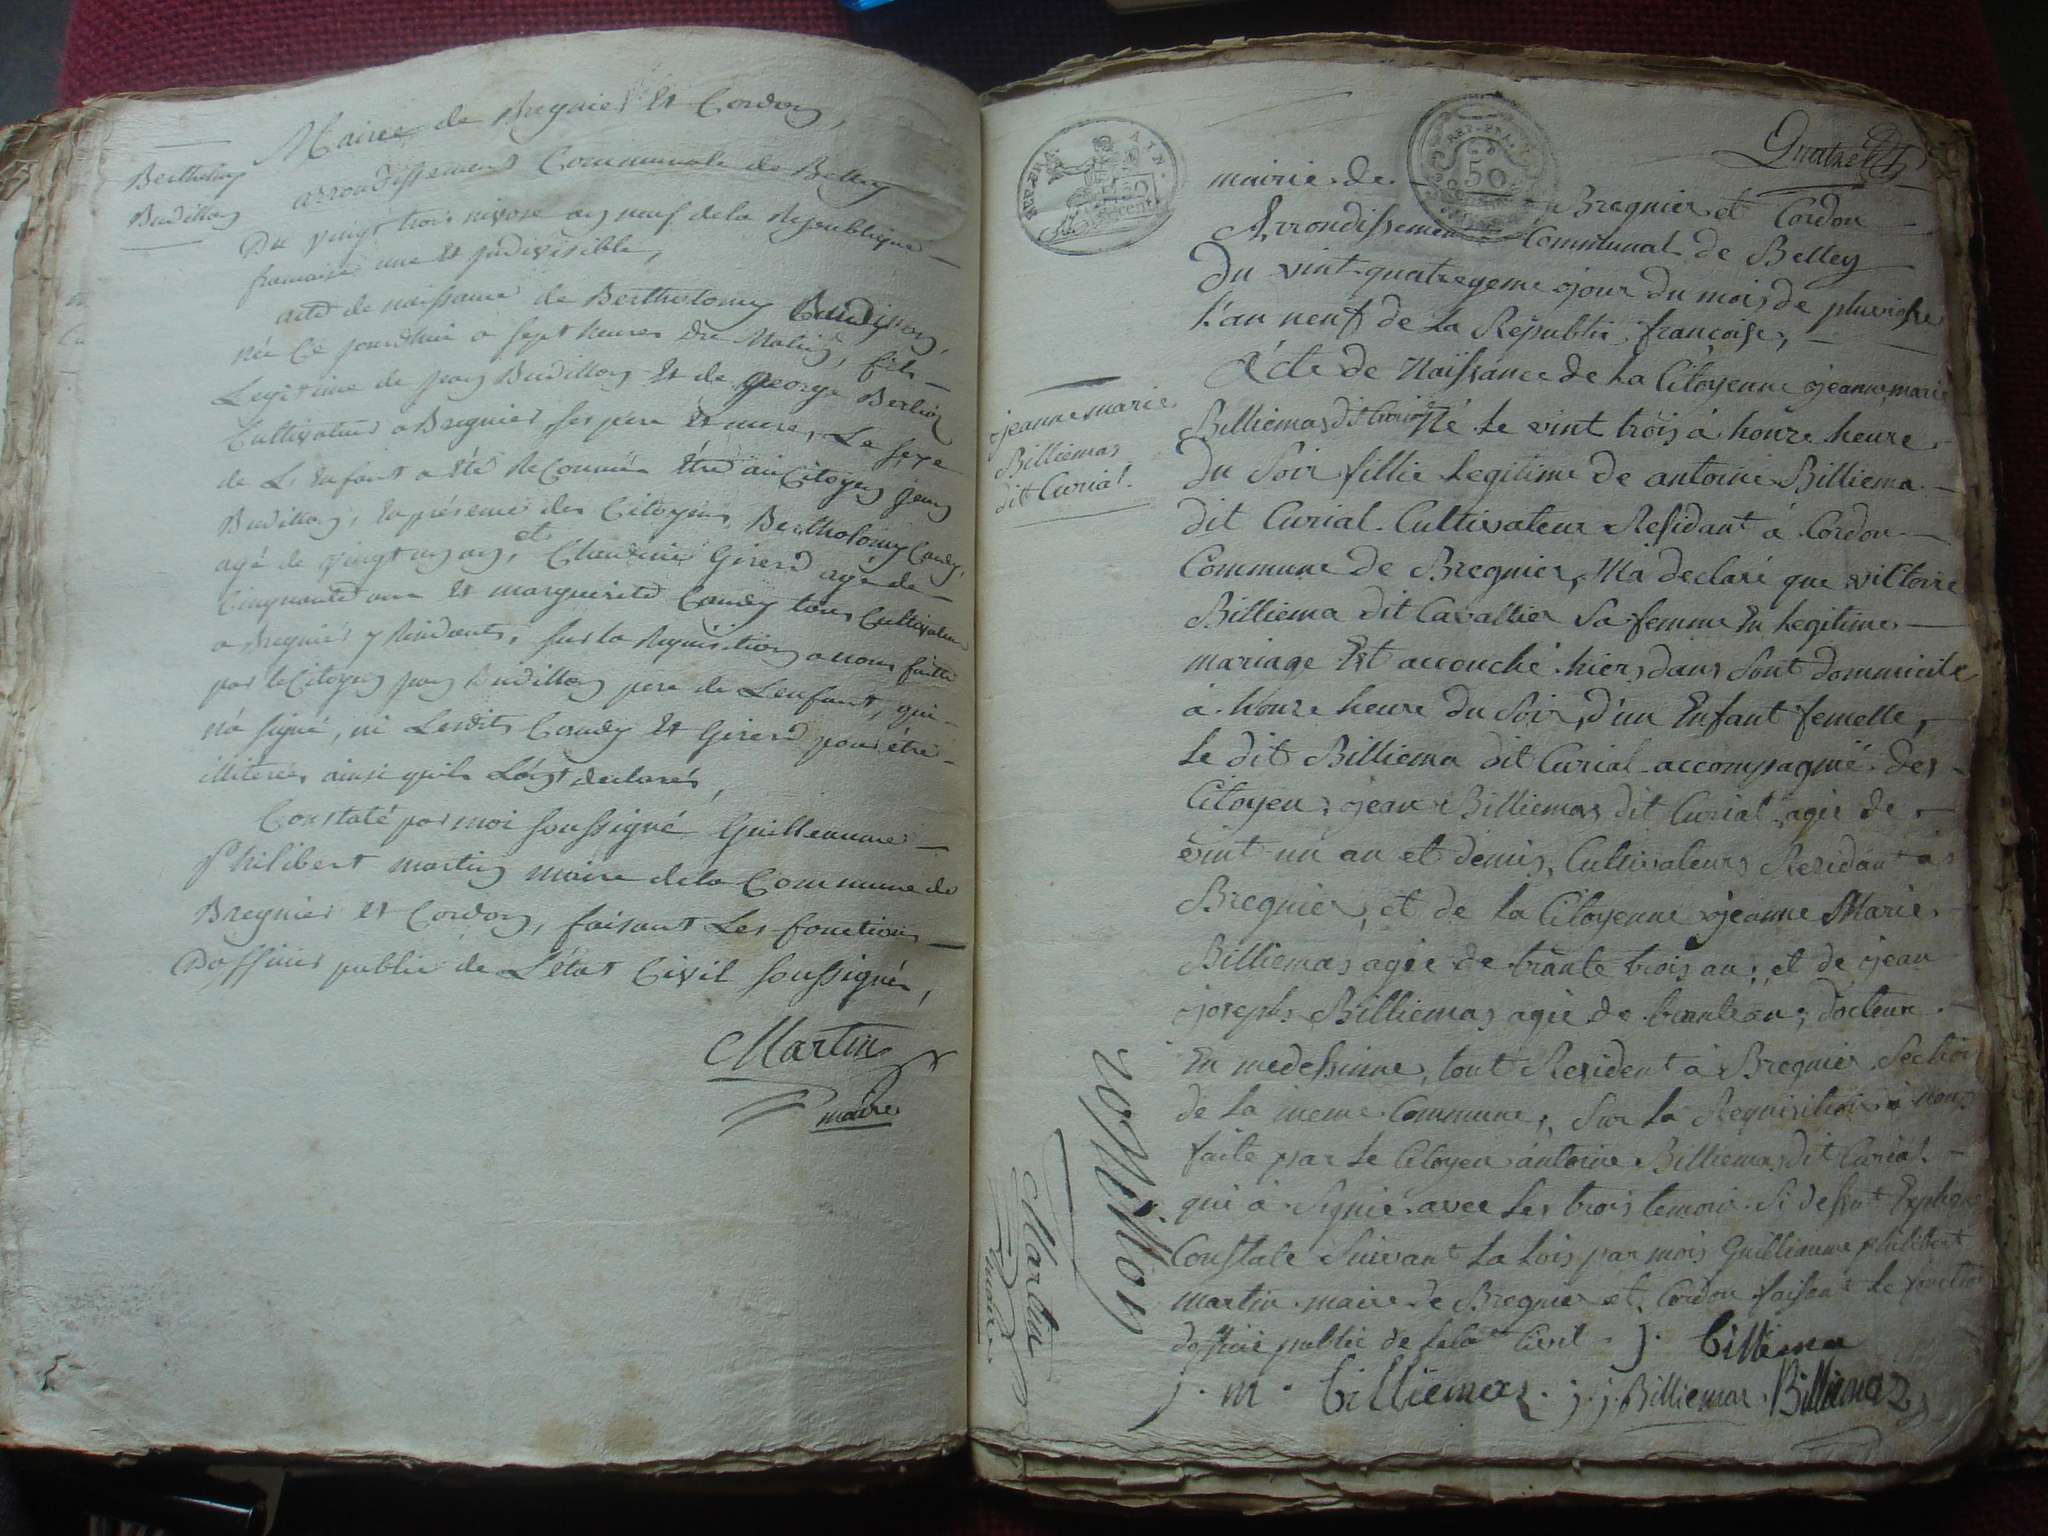 Bertholomy
Budillon
Mairie de Bregnier Et Cordon,
arrondissement Communale de Belley
Du vingt trois nivose an neuf de la Republique
francaise une et Indivisible,
acte de naissance de Bertholomy Budillon,
née Ce jourdhui a sept heures du Matin, fils
Legitime de jean Budillon Et de George Berlioz
Cultivateurs a Bregnier ses pere Et mere, Le sexe
de L'Enfant a Eté Reconnu Etre au Citoyen jean
Budillon, En présence des Citoyens Bertholomy Candy,
agé de vingt un an, et Claudine Girerd agé de
Cinquante ans Et marguerite Candy tous Cultivateurs
a Bregnier y Residents, sur la Requisition a nous faitte
par le Citoyen jean Budillon pere de L'enfant, qui
n'a signé, ni Lesdits Candy Et Girerd pour être
illiteres ainsi quils L'ont declarés,
Constaté par moi soussigné Guilleaume
Philibert martin maire de la Commune de
Bregnier Et Cordon, faisant Les fonctions
D'officier public de L'état Civil soussigné,
Martin
maire
5
REP. FRA.
50
Quatre
mairie de Bregnier et Cordon
Arrondissement Communal de Belley
Du vint quatreyeme jour du mois de pluviose
l'an neuf de La Republi françoise,
Acte de Naissance de La Citoyenne jeanne marie
Billiemas dit Curial Né Le vint trois à honze heure
Du Soir fillie Legitime de antoine Billiema
dit Curial Cultivateur Residant à Cordon
Commune de Bregnier, Ma declaré que victoire
Billiema dit Cavallier Sa femme En Legitime
mariage Est accouché hier dans sont dommicile
à honze heure du Soir, d'un Enfant femelle,
Le dit Billiema dit Curial accompagnié des
Citoyen jean Billiemas dit Curial agié de
vint un an et demis, Cultivateurs Residant à
Bregnier, et de La Citoyenne jeanne Marie
Billiemas agié de trante trois an; et de jean
joseph Billiemas agié de trante an; docteur
En medessinne, tout Resident à Bregnier Section
de La meme Commune, Sur La Requisition à nous
faite par Le Citoyen antoine Billiemas dit Curial
qui à Signié avec Les trois temoin Si dessut Expliqué
Constate Suivant La Lois par mois Guilliaume philibert
martin maire de Bregnier et Cordon faisant Le fonction
doffisié public de Leta Civil j. billiema
j. m. billiemaz. j. j. Billiemaz. Billiemaz
jeanne marie
Billiemas
dit Curial.
Martin
maire